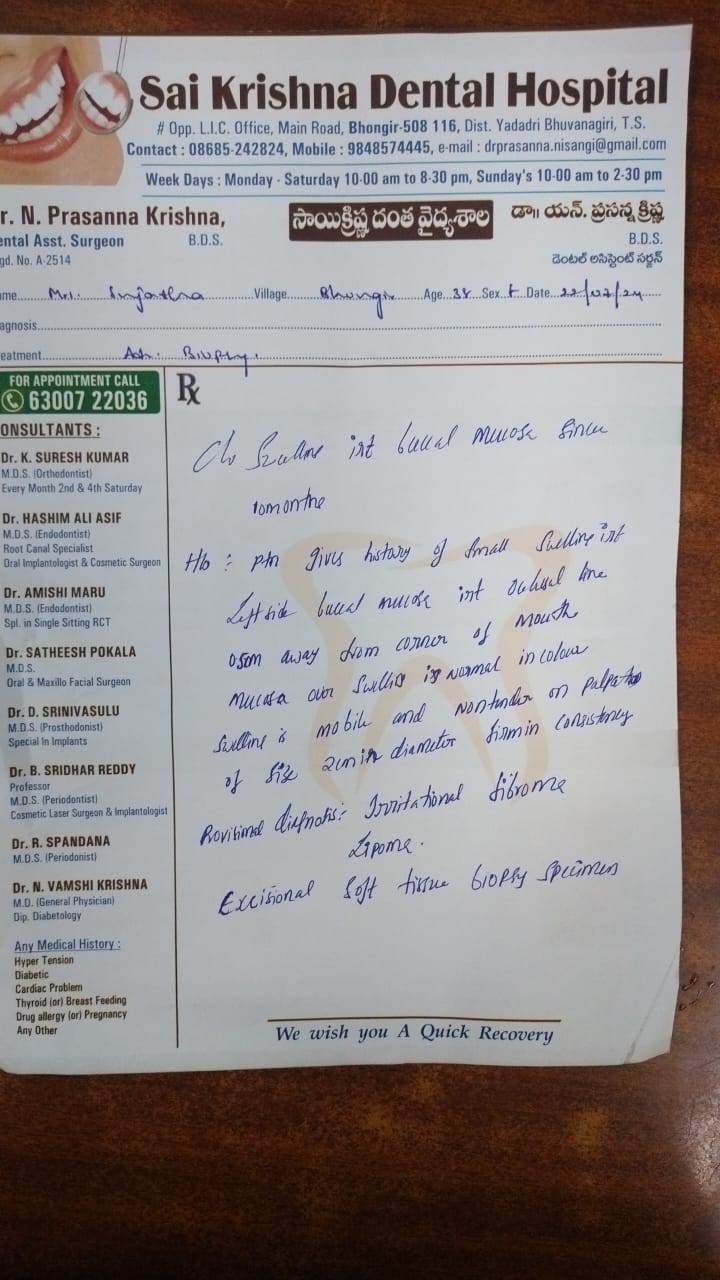 Sai Krishna Dental Hospital
# Opp. L.I.C. Office, Main Road, Bhongir-508 116, Dist. Yadadri Bhuvanagiri, T.S.
Contact : 08685-242824, Mobile : 9848574445, e-mail : drprasanna.nisangi@gmail.com
Week Days : Monday - Saturday 10-00 am to 8-30 pm, Sunday's 10-00 am to 2-30 pm
r. N. Prasanna Krishna,
ental Asst. Surgeon B.D.S.
gd. No. A-2514
సాయిక్రిష్ణ దంత వైద్యశాల
డా॥ యన్. ప్రసన్న క్రిష్ణ
B.D.S.
డెంటల్ అసిస్టెంట్ సర్జన్
ame Mrs. Sujatha Village Bhongir Age 38 Sex f Date 22/02/24
agnosis
eatment Adv. Biopsy.
FOR APPOINTMENT CALL
63007 22036
ONSULTANTS :
Dr. K. SURESH KUMAR
M.D.S. (Orthodontist)
Every Month 2nd & 4th Saturday
Dr. HASHIM ALI ASIF
M.D.S. (Endodontist)
Root Canal Specialist
Oral Implantologist & Cosmetic Surgeon
Dr. AMISHI MARU
M.D.S. (Endodontist)
Spl. in Single Sitting RCT
Dr. SATHEESH POKALA
M.D.S.
Oral & Maxillo Facial Surgeon
Dr. D. SRINIVASULU
M.D.S. (Prosthodontist)
Special In Implants
Dr. B. SRIDHAR REDDY
Professor
M.D.S. (Periodontist)
Cosmetic Laser Surgeon & Implantologist
Dr. R. SPANDANA
M.D.S. (Periodontist)
Dr. N. VAMSHI KRISHNA
M.D. (General Physician)
Dip. Diabetology
Any Medical History :
Hyper Tension
Diabetic
Cardiac Problem
Thyroid (or) Breast Feeding
Drug allergy (or) Pregnancy
Any Other
Rx
C/o Swelling irt buccal mucosa since
10months
H/o : ptn gives history of small swelling irt
Left side buccal mucosa irt occlusal line
05cm away from corner of mouth
mucosa over swelling is normal in colour
swelling is mobile and nontender on palpation
of size 2cm in diameter firm in consistency
Provisional diagnosis:- Irritational fibroma
Lipoma.
Excisional soft tissue biopsy specimen
We wish you A Quick Recovery